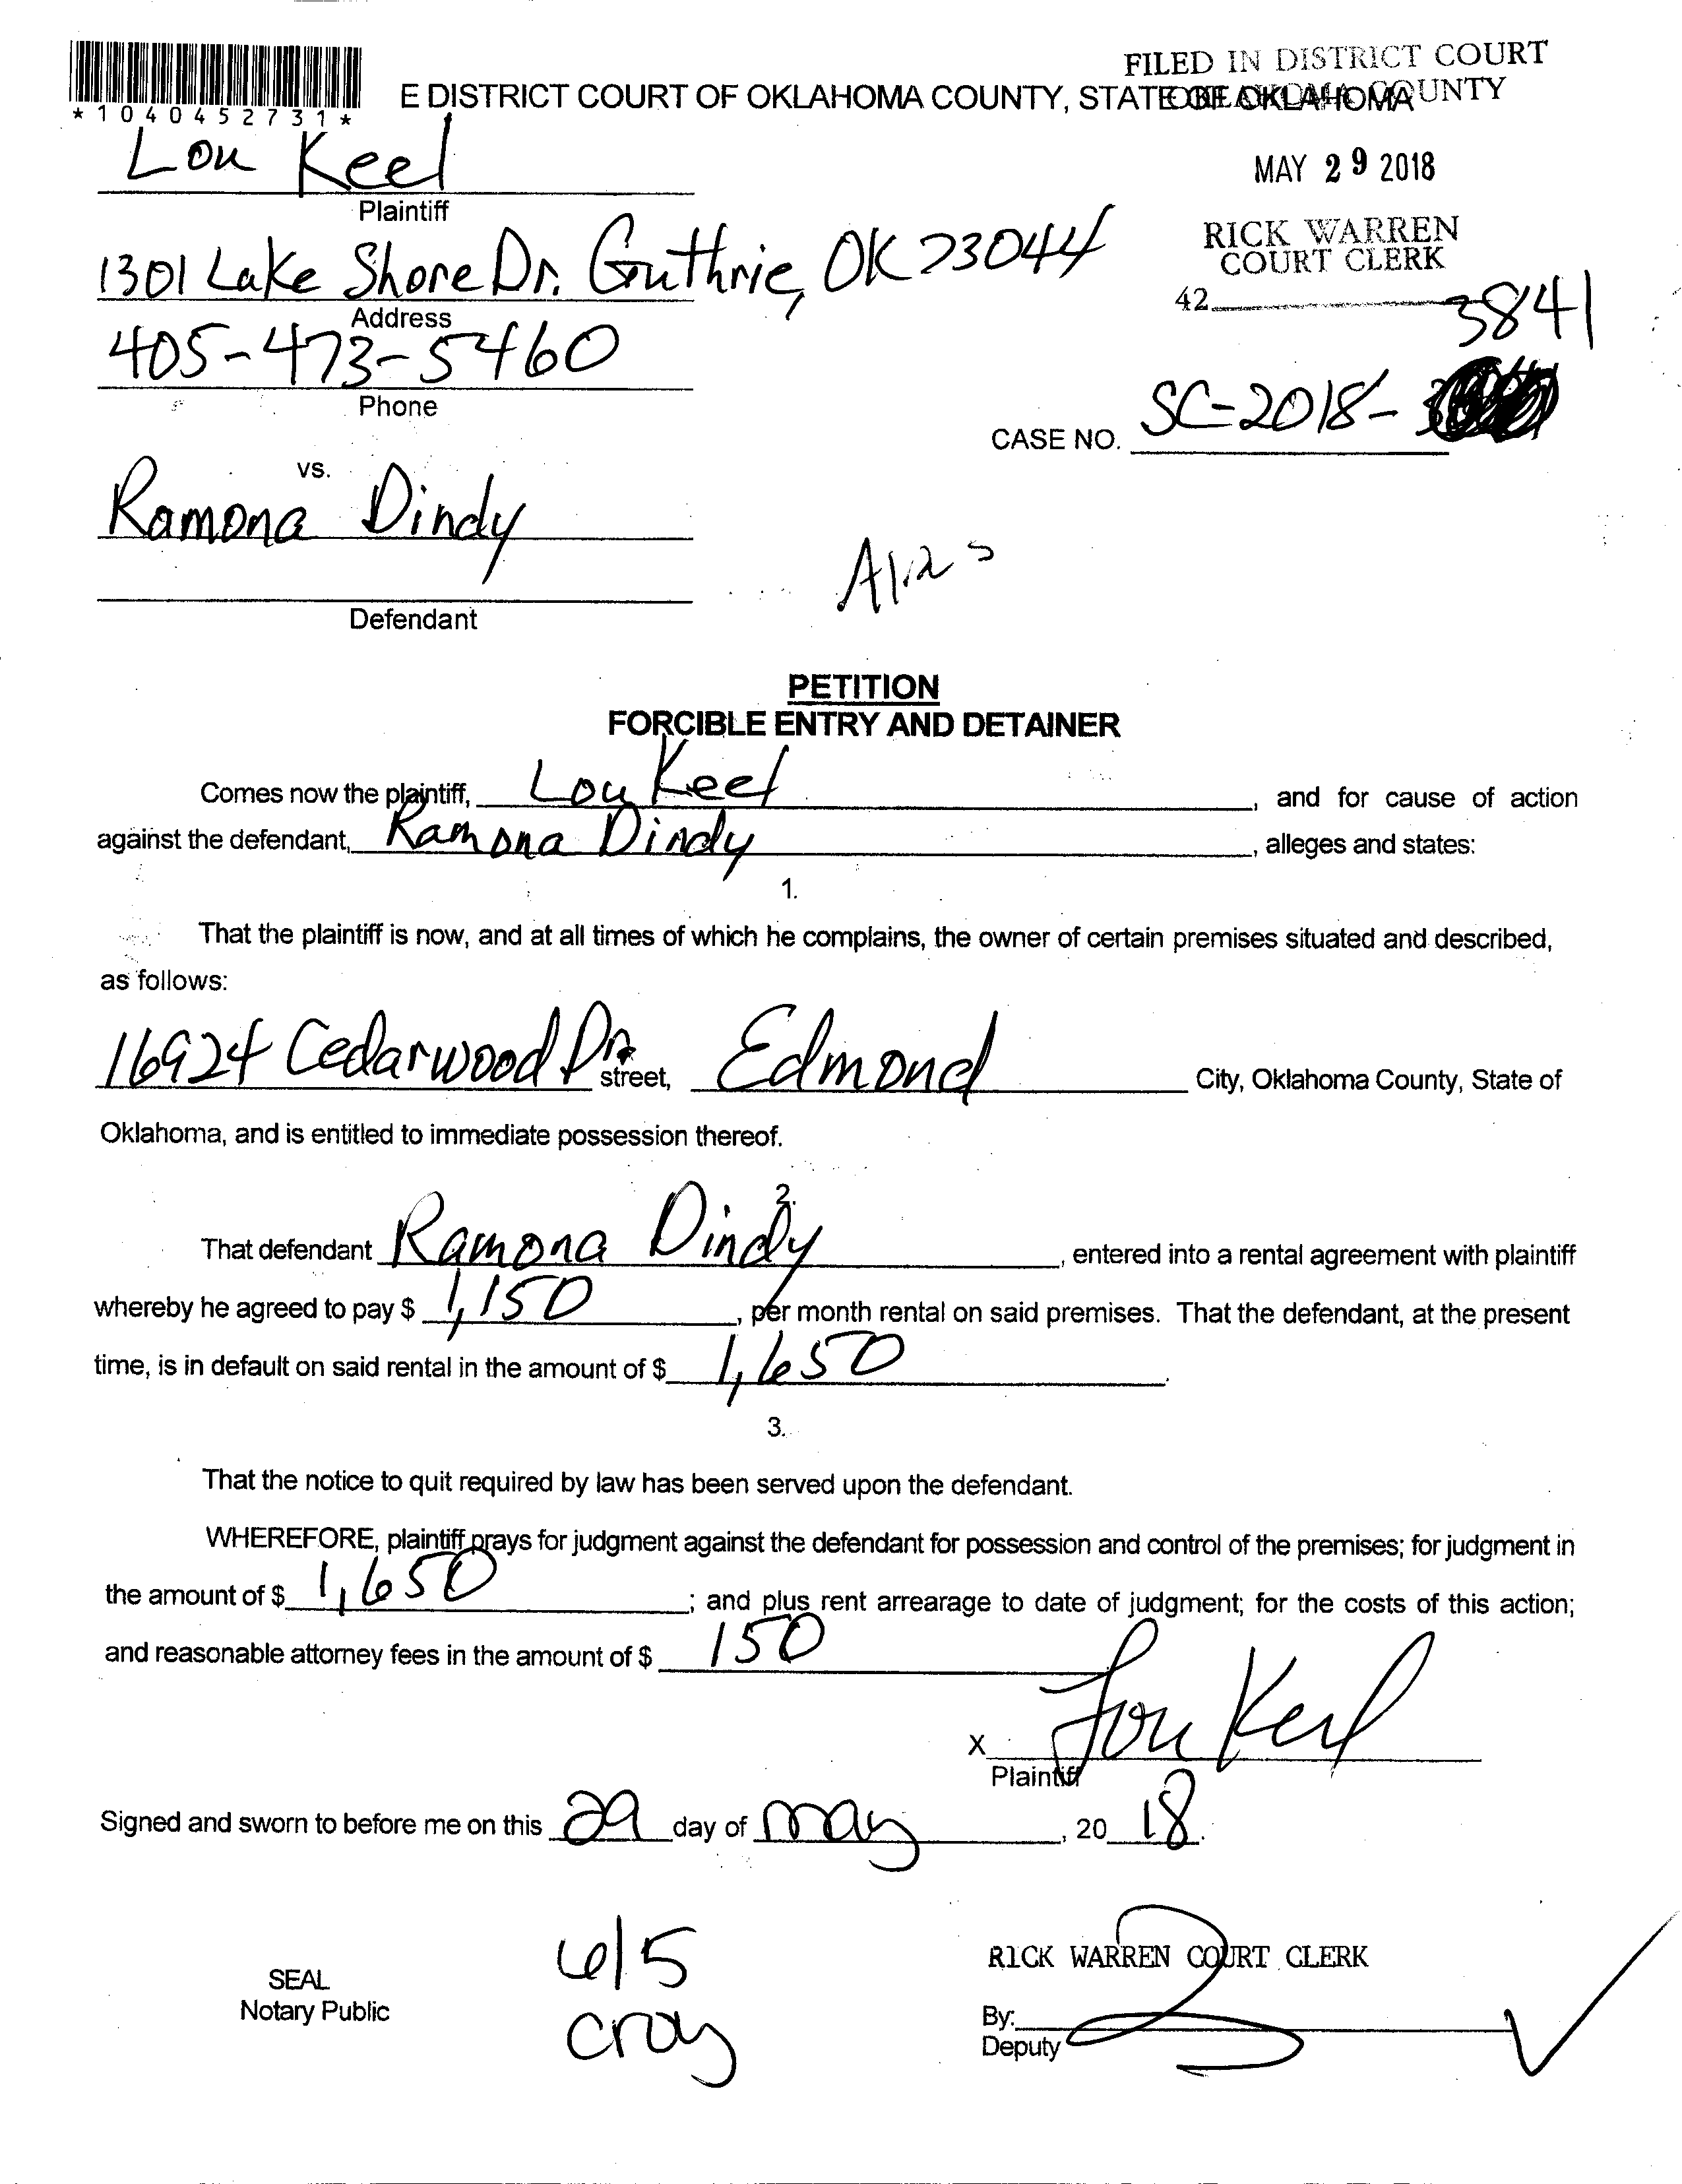 FILED IN DISTRICT COURT
OKLAHOMA COUNTY
*1040452731*
E DISTRICT COURT OF OKLAHOMA COUNTY, STATE OF OKLAHOMA
MAY 29 2018
RICK WARREN
COURT CLERK
42
Lou Keel
Plaintiff
1301 Lake Shore Dr. Guthrie, OK 73044
Address
405-473-5460
Phone
3841
CASE NO. SC-2018-
vs.
Ramona Dindy
Alias
Defendant
PETITION
FORCIBLE ENTRY AND DETAINER
Comes now the plaintiff, Lou Keel, and for cause of action
against the defendant, Ramona Dindy, alleges and states:
1.
That the plaintiff is now, and at all times of which he complains, the owner of certain premises situated and described,
as follows:
16924 Cedarwood Dr. street, Edmond City, Oklahoma County, State of
Oklahoma, and is entitled to immediate possession thereof.
2.
That defendant Ramona Dindy, entered into a rental agreement with plaintiff
whereby he agreed to pay $ 1,150, per month rental on said premises. That the defendant, at the present
time, is in default on said rental in the amount of $ 1,650.
3.
That the notice to quit required by law has been served upon the defendant.
WHEREFORE, plaintiff prays for judgment against the defendant for possession and control of the premises; for judgment in
the amount of $ 1,650; and plus rent arrearage to date of judgment; for the costs of this action;
and reasonable attorney fees in the amount of $ 150
X Lou Keel
Plaintiff
Signed and sworn to before me on this 29 day of May, 2018.
6/5
Croy
SEAL
Notary Public
RICK WARREN COURT CLERK
By:
Deputy